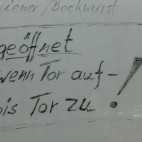 Wiener/Bockwurst
geöffnet
wenn Tor auf-
bis Tor zu!